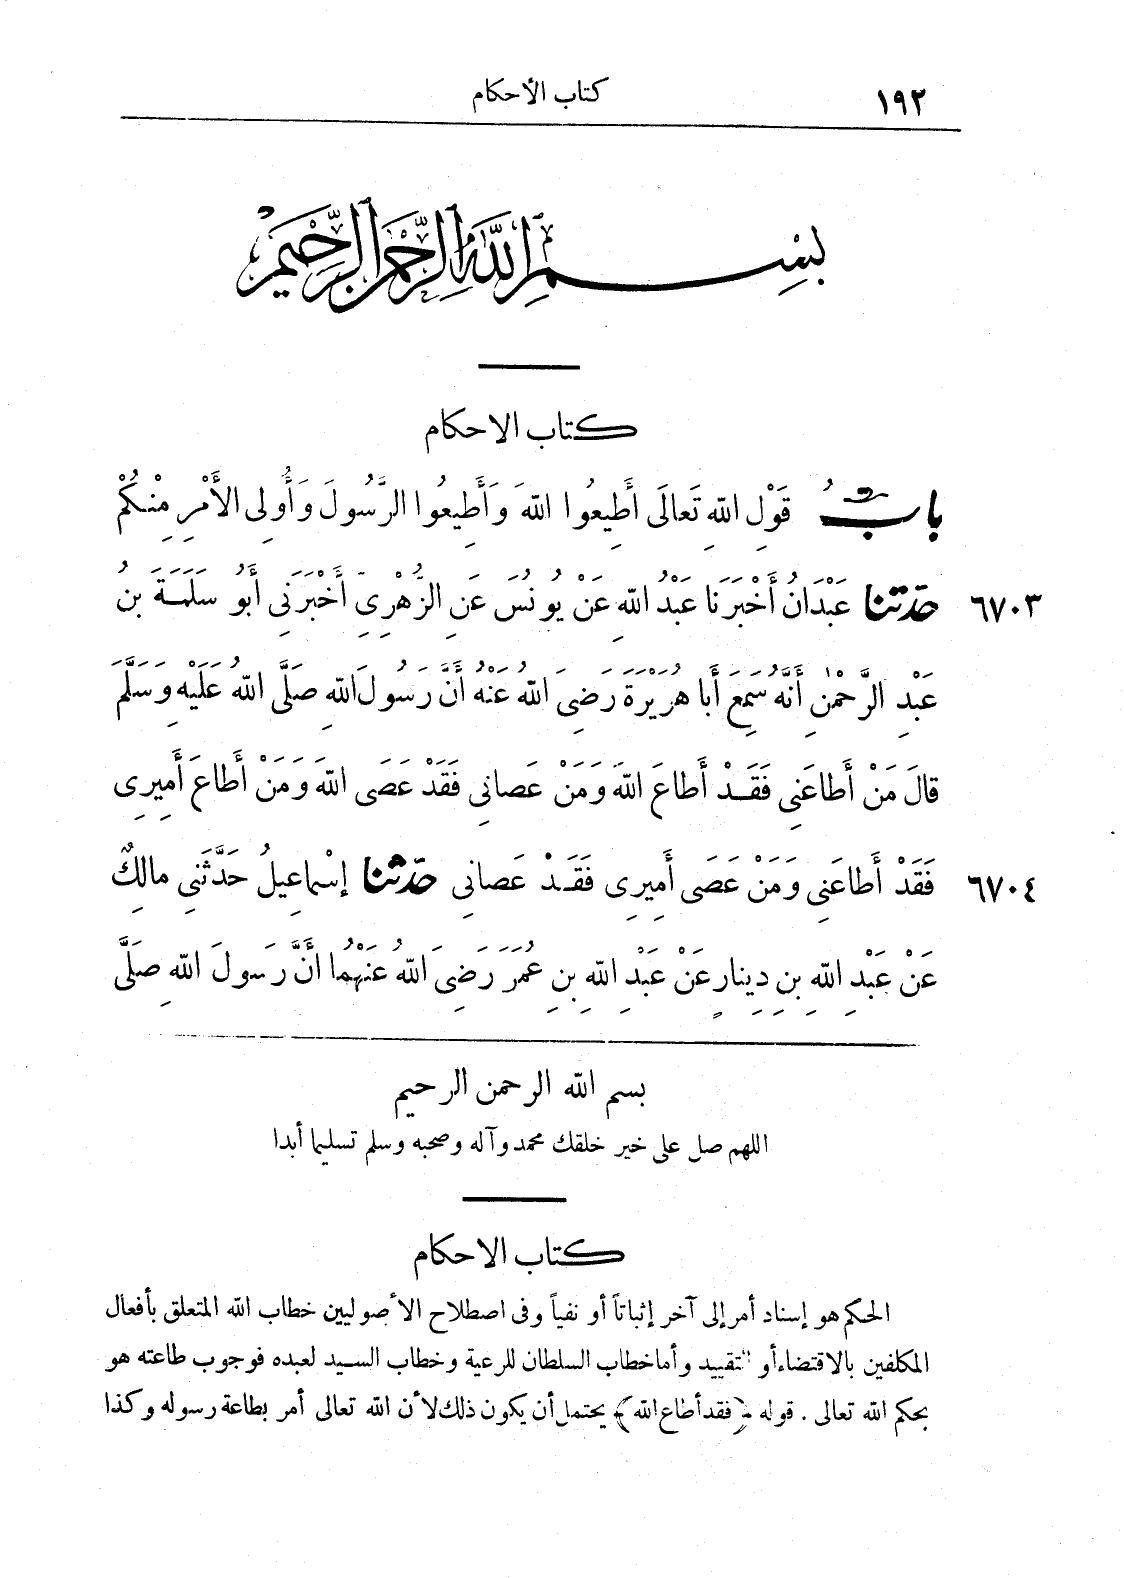 ١٩٢ كتاب الأحكام
بِسْمِ اللهِ الرَّحْمٰنِ الرَّحِيمِ
كتاب الاحكام
بابُ قَوْلِ اللهِ تَعالَى أَطِيعُوا اللهَ وَأَطِيعُوا الرَّسُولَ وَأُولِى الأَمْرِ مِنْكُمْ
٦٧٠٣ حَدَّثَنا عَبْدَانُ أَخْبَرَنا عَبْدُ اللهِ عَنْ يُونُسَ عَنِ الزُّهْرِىِّ أَخْبَرَنِى أَبُو سَلَمَةَ بْنُ
عَبْدِ الرَّحْمٰنِ أَنَّهُ سَمِعَ أَبا هُرَيْرَةَ رَضِىَ اللهُ عَنْهُ أَنَّ رَسُولَ اللهِ صَلَّى اللهُ عَلَيْهِ وَسَلَّمَ
قالَ مَنْ أَطاعَنِى فَقَدْ أَطاعَ اللهَ وَمَنْ عَصانِى فَقَدْ عَصَى اللهَ وَمَنْ أَطاعَ أَمِيرِى
فَقَدْ أَطاعَنِى وَمَنْ عَصَى أَمِيرِى فَقَدْ عَصانِى حَدَّثَنا إِسْماعِيلُ حَدَّثَنِى مالِكٌ ٦٧٠٤
عَنْ عَبْدِ اللهِ بنِ دِينارٍ عَنْ عَبْدِ اللهِ بنِ عُمَرَ رَضِىَ اللهُ عَنْهُما أَنَّ رَسُولَ اللهِ صَلَّى
بسم الله الرحمن الرحيم
اللهم صل على خير خلقك محمد وآله وصحبه وسلم تسليما أبدا
كتاب الاحكام
الحكم هو إسناد أمر إلى آخر إثباتاً أو نفياً وفى اصطلاح الأصوليين خطاب الله المتعلق بأفعال
المكلفين بالاقتضاء أو التقييد وأما خطاب السلطان للرعية وخطاب السيد لعبده فوجوب طاعته هو
بحكم الله تعالى . قوله ﴿فقد أطاع الله﴾ يحتمل أن يكون ذلك لأن الله تعالى أمر بطاعة رسوله وكذا